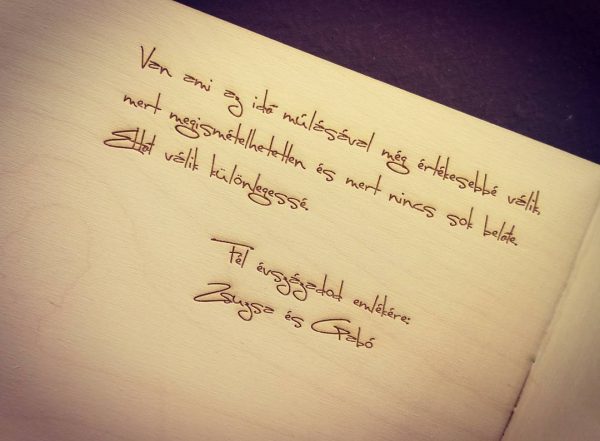 Van ami az idő múlásával még értékesebbé válik,
mert megismételhetetlen és mert nincs sok belőle.
Ettől válik különlegessé.
Fél évszázadod emlékére:
Zsuzsa és Gabó